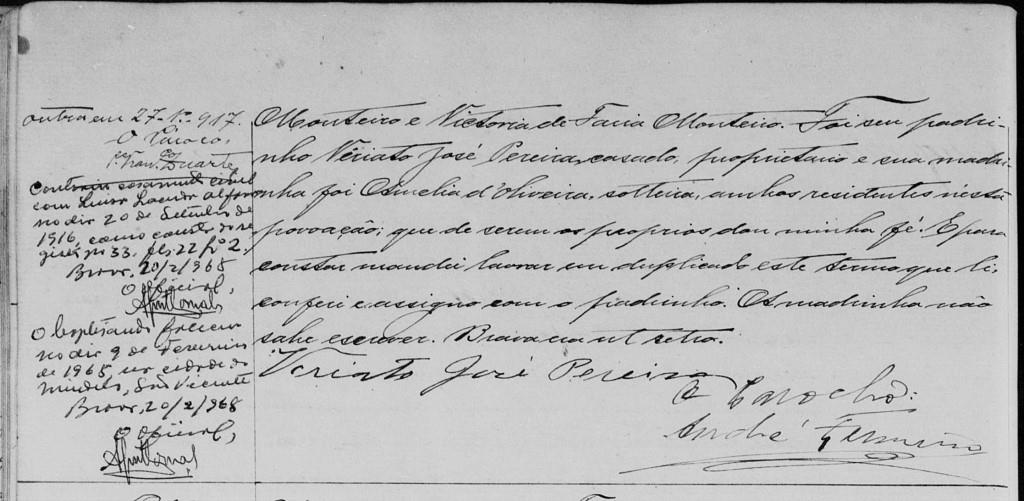 outra em 27-1º-917.
O Paroco,
Pe. Fran.co Duarte
Contraiu casamento civil
com Luisa
no dia 20 de Setembro de
1916, como consta do re
gisto nº 33, fls, 22 Lº 2.
Brava, 20/2/968
O Oficial,
O baptisando faleceu
no dia 9 de Fevereiro
de 1965, na cidade do
Mindelo, São Vicente
Brava, 20/2/968
O Oficial,
Monteiro e Victoria de Faria Monteiro. Foi seu padri-
nho Viriato José Pereira, casado, proprietario e sua madri-
nha foi Amelia d'Oliveira, solteira, ambos residentes nesta
povoação; que de serem os proprios dou minha fé. E para
constar mandei lavrar em duplicado este termo que li,
conferi e assigno com o padrinho. A madrinha não
sabe escrever. Brava era ut retro.
Viriato José Pereira
O Parocho:
André Firmino